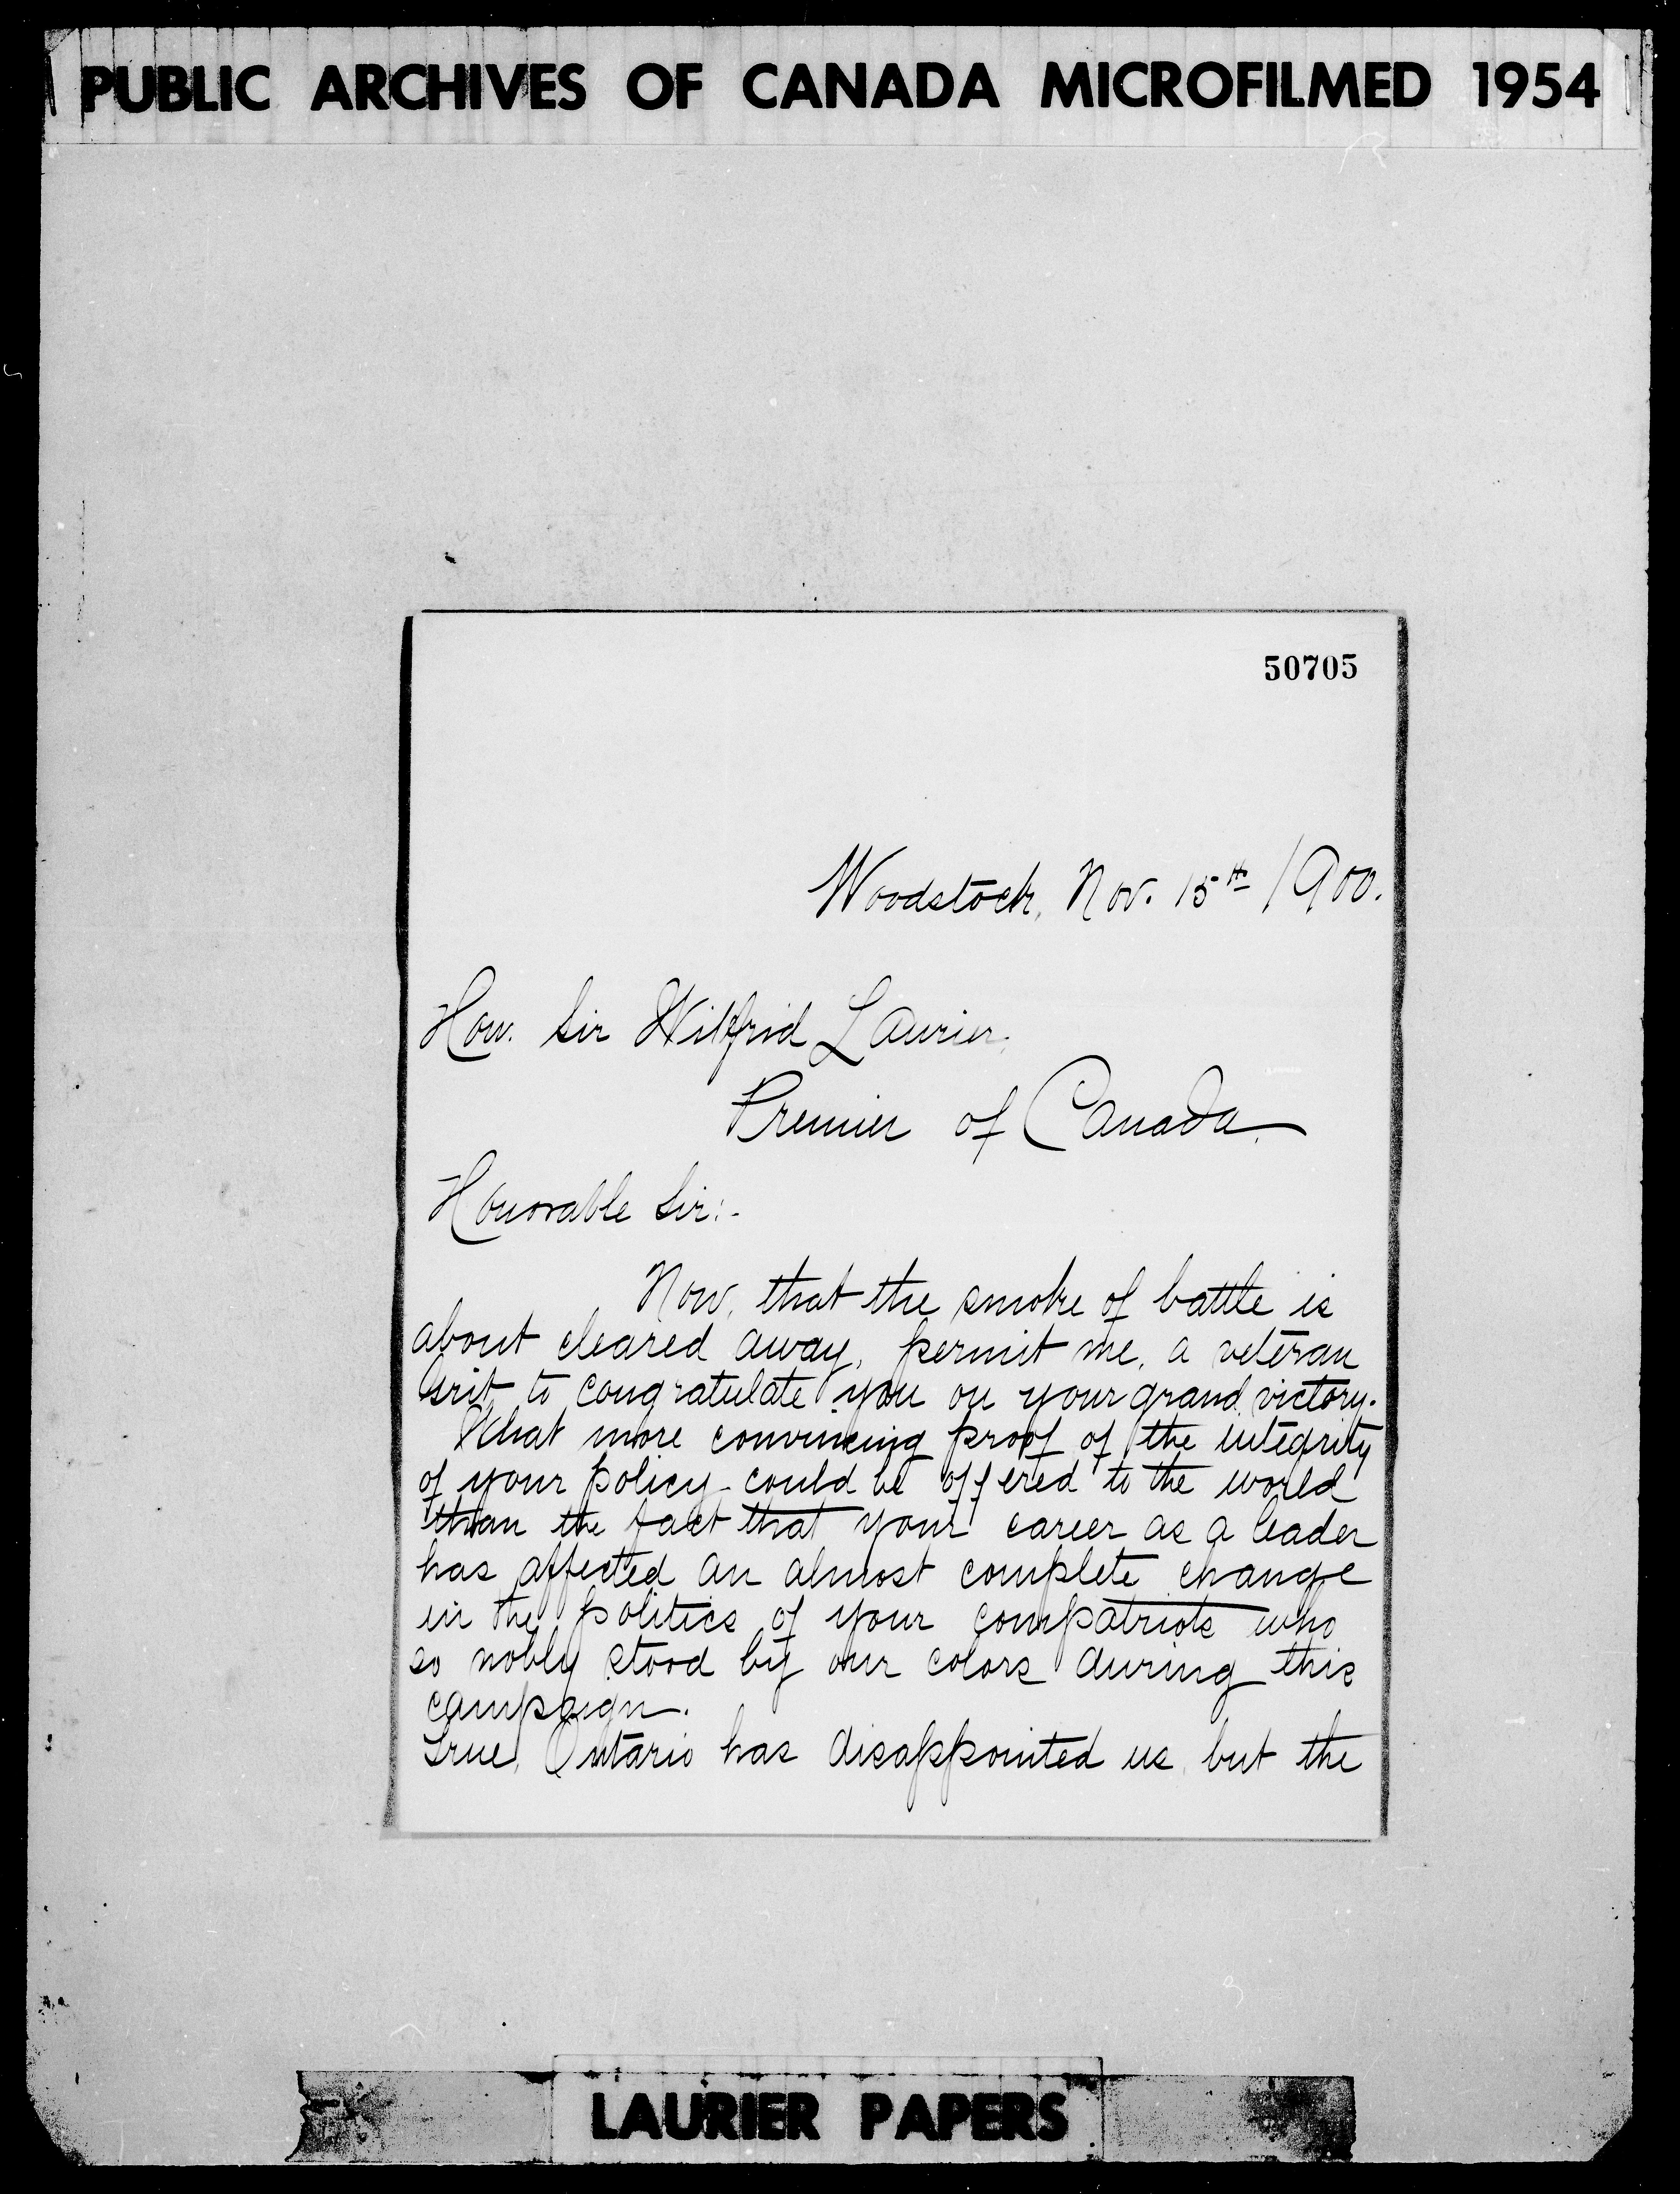 PUBLIC ARCHIVES OF CANADA MICROFILMED 1954
50705
Woodstock, Nov. 15th 1900.
Hon. Sir Wilfrid Laurier,
Premier of Canada.
Honorable Sir:-
Now, that the smoke of battle is
about cleared away, permit me, a veteran
Grit, to congratulate you on your grand victory.
What more convincing proof of the integrity
of your policy could be offered to the world
than the fact that your career as a leader
has affected an almost complete change
in the politics of your compatriots who
so nobly stood by our colors during this
campaign.
True, Ontario has disappointed us, but the
LAURIER PAPERS